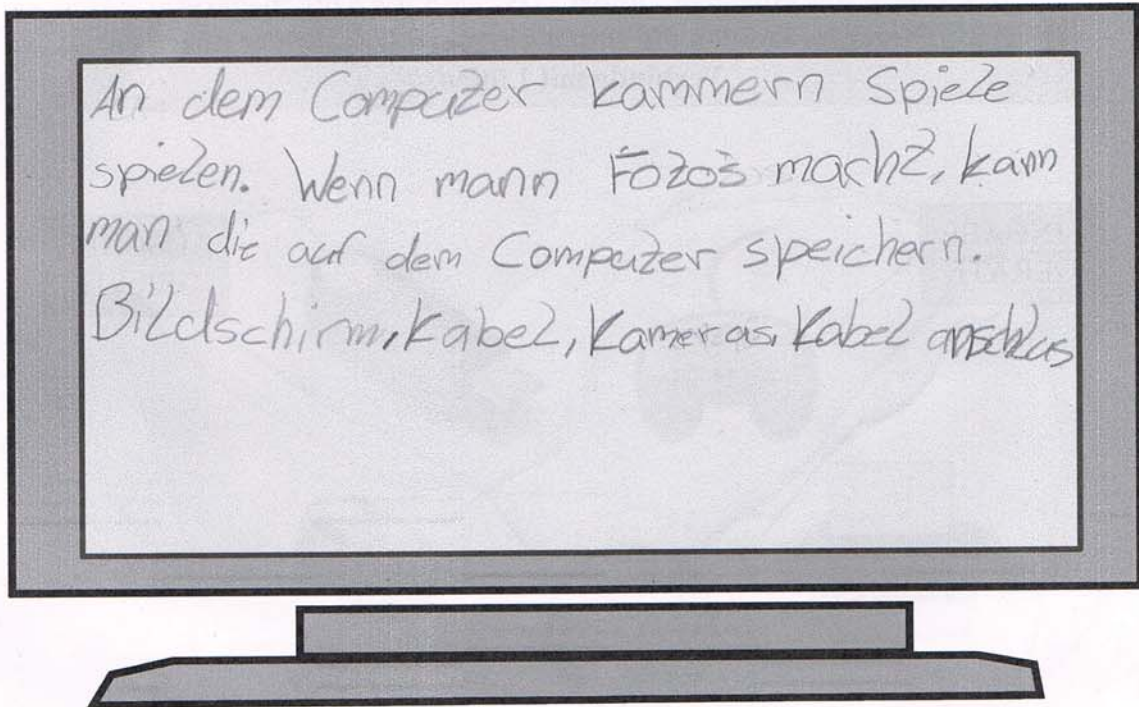 An dem Computer kammern Spiele
spielen. Wenn mann Fotos macht, kann
man die auf dem Computer speichern.
Bildschirm, Kabel, Kameras, Kabel anschlus